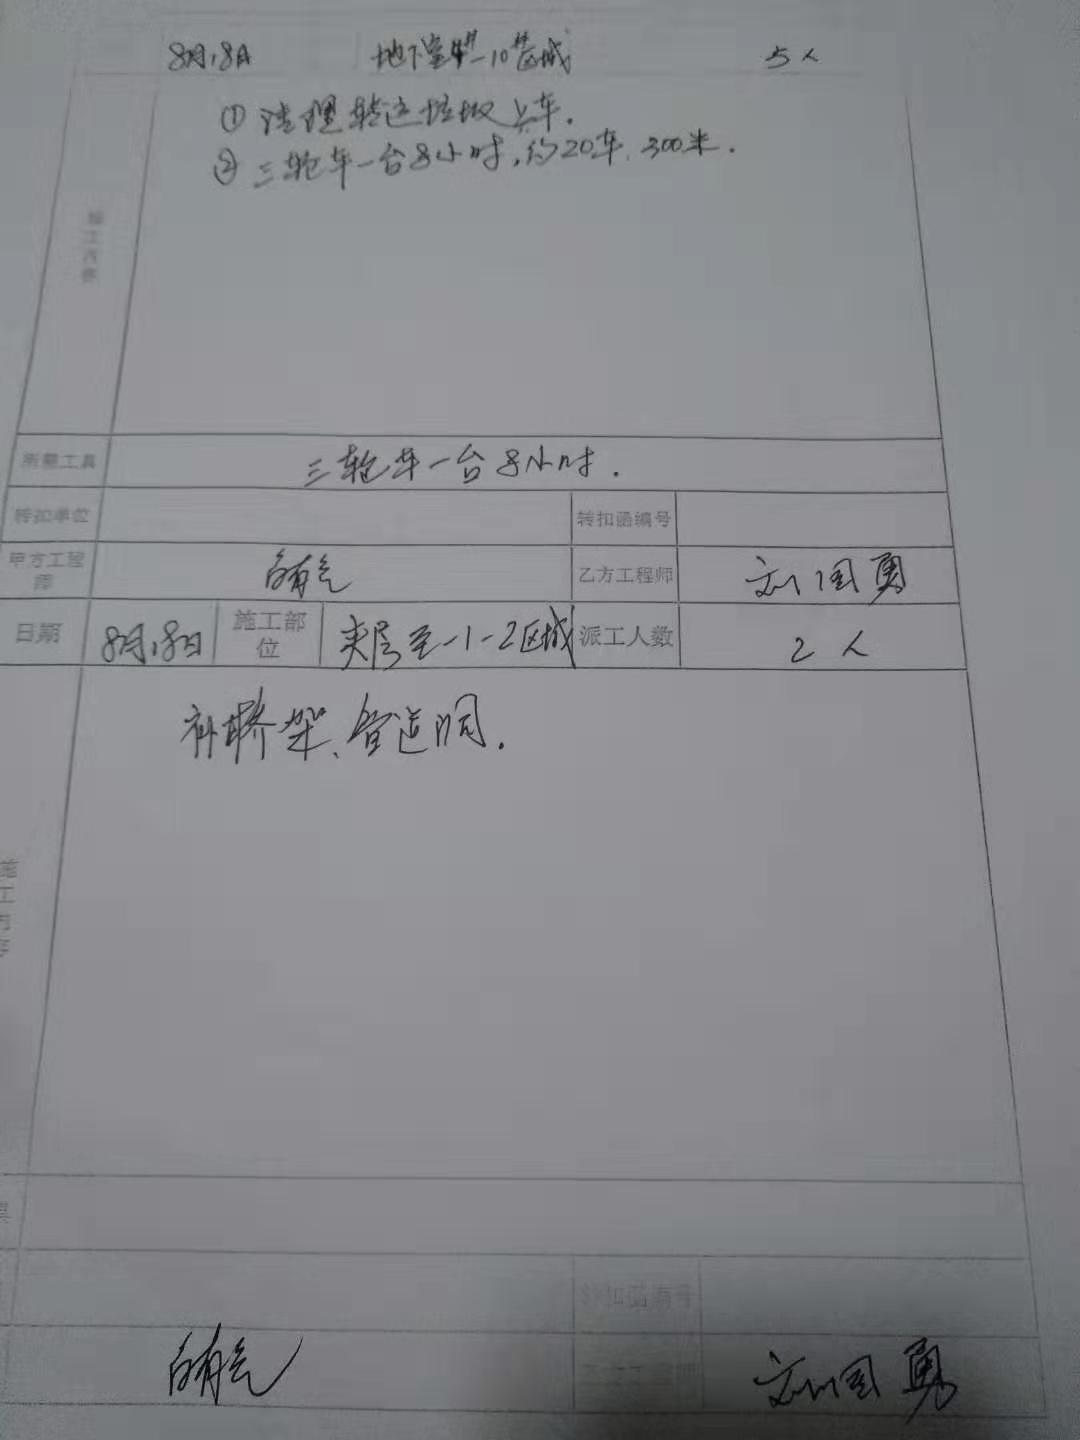 8月18日 地下室4#-10#区域 5人
①清理转运垃圾上车.
②三轮车一台8小时,约20车,300米.
施工内容
所需工具 三轮车一台8小时.
转扣单位 转扣函编号
甲方工程师 乙方工程师 刘国勇
日期 8月18日 施工部位 夹层至-1-2区域 派工人数 2人
补桥架、管道洞.
施工内容
转扣函编号
刘国勇